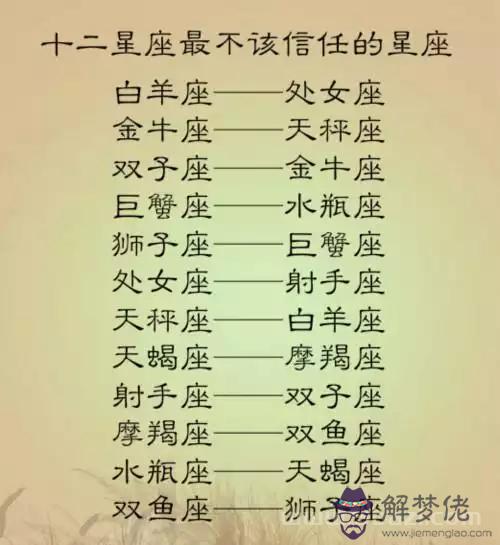 十二星座最不该信任的星座
白羊座——处女座
金牛座——天秤座
双子座——金牛座
巨蟹座——水瓶座
狮子座——巨蟹座
处女座——射手座
天秤座——白羊座
天蝎座——摩羯座
射手座——双子座
摩羯座——双鱼座
水瓶座——天蝎座
双鱼座——狮子座
解梦佬
www.jiemenglao.com